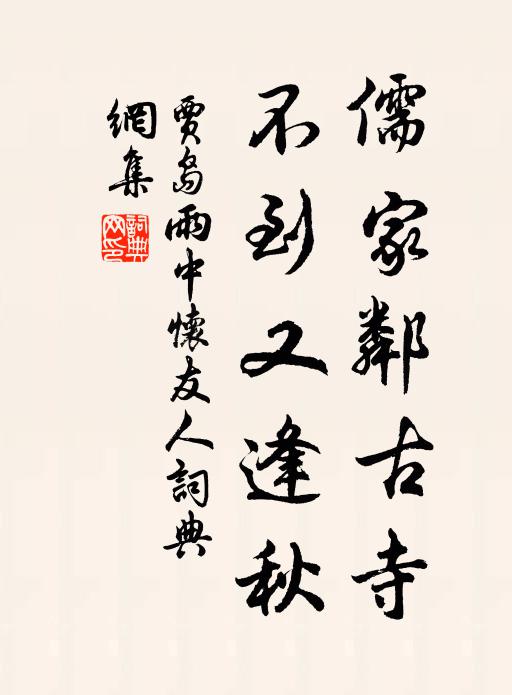 儒家鄰古寺
不到又逢秋
賈島雨中懷友人詞典
網集
詞典
网印